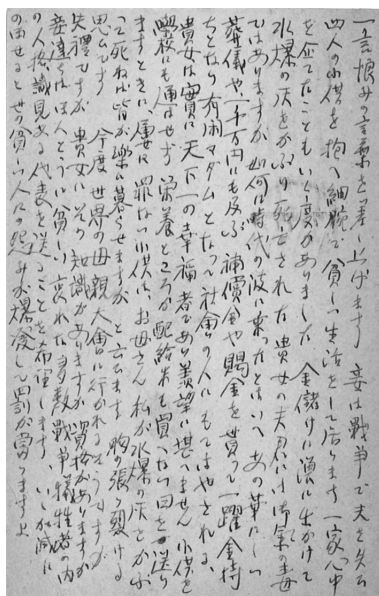 一言恨みの言葉を差し上げます 妾は戦争で夫を失ひ
四人の小供を抱へ細腕で貧しい生活をして居ります 一家心中
を企てたこともいく度かありました 金儲けに漁に出かけて
水爆の灰をかぶり死亡された貴女の夫君には御気の毒
ではありますが如何に時代の波に乗ったとはいへ あの華々しい
葬儀や、一千万円にも及ぶ補償金や賜金を貰って一躍金持
ちとなり有閑マダムとなって社會の人にもてはやされる、
貴女は實に天下一の幸福者であり羨望に堪へません 小供を
學校にも通はせず栄養どころか配給米も買へない日を送り
ますときに屡々罪ない小供は、お母さん私が水爆の灰をかぶ
って死ねば皆が楽に暮らせますがと云ひます 胸の張り裂ける
思ひです 今度世界の母親大會に行かれるそうですが
失禮ですが貴女にその知識がありますか資格がありますか
妾達は 貧しい哀れな多数戦争犠牲者の内
の人格識見ある代表を送ることを希望します、いゝ加減に
世の貧しい人々の怨みが爆発して罰が當りますよ